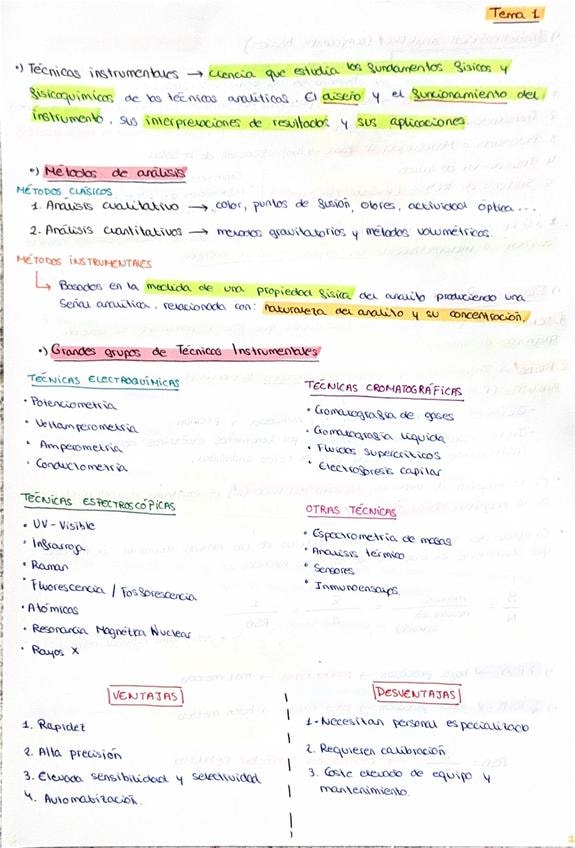 Tema 1
·) Técnicas instrumentales → ciencia que estudia los fundamentos físicos y
fisicoquímicos de las técnicas analíticas. El diseño y el funcionamiento del
instrumento, sus interpretaciones de resultados y sus aplicaciones.
·) Métodos de análisis
MÉTODOS CLÁSICOS
1. Análisis cualitativo → color, puntos de fusión, olores, actividad óptica...
2. Análisis cuantitativos → métodos gravitatorios y métodos volumétricos.
MÉTODOS INSTRUMENTALES
↳ Basados en la medida de una propiedad física del analito produciendo una
señal analítica, relacionada con: naturaleza del analito y su concentración.
·) Grandes grupos de Técnicas Instrumentales
TÉCNICAS ELECTROQUÍMICAS
· Potenciometría
· Voltamperometría
· Amperometría
· Conductometría
TÉCNICAS CROMATOGRÁFICAS
· Cromatografía de gases
· Cromatografía líquida
· Fluidos supercríticos
· Electroforesis capilar
TÉCNICAS ESPECTROSCÓPICAS
· UV-Visible
· Infrarrojo
· Raman
· Fluorescencia / Fosforescencia
· Atómicas
· Resonancia Magnética Nuclear
· Rayos X
OTRAS TÉCNICAS
· Espectrometría de masas
· Análisis térmico
· Sensores
· Inmunoensayos.
VENTAJAS
1. Rapidez
2. Alta precisión
3. Elevada sensibilidad y selectividad
4. Automatización.
DESVENTAJAS
1.- Necesitan personal especializado
2. Requieren calibración
3. Coste elevado de equipo y
mantenimiento.
1